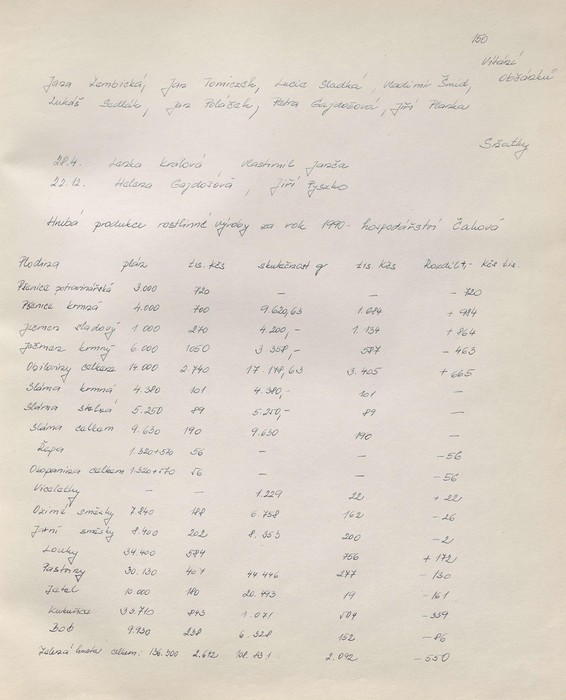 150
Vítání
občánků
Jana Zembická, Jan Tomiczek, Lucie Sladká, Vladimír Šmíd,
Lukáš Sedlák, Jan Poláček, Petra Gajdošová, Jiří Planka
Sňatky
28.4. Lenka Králová Vlastimil Janča
22.12. Helena Gajdošová, Jiří Pyszko
Hrubá produkce rostlinné výroby za rok 1990 - hospodářství Čaková
Plodina plán tis. Kčs skutečnost q tis. Kčs Rozdíl +,- Kčs tis.
Pšenice potravinářská 3.000 720 — — - 720
Pšenice krmná 4.000 700 9.620,63 1.684 + 984
Ječmen sladový 1 000 270 4.200,- 1.134 + 864
Ječmen krmný 6.000 1050 3 358,- 587 - 463
Obiloviny celkem 14.000 2 740 17.178,63 3.405 + 665
Sláma krmná 4.380 101 4.380,- 101 —
Sláma stelná 5.250 89 5.250,- 89 —
Sláma celkem 9.630 190 9.630 190 —
Řepa 1.320+570 56 — — -56
Okopanina celkem 1.320+570 56 — — -56
Víceletky — — 1.229 22 + 22
Ozimé směsky 7.840 188 6.758 162 - 26
Jarní směsky 8.400 202 8.353 200 -2
Louky 34.400 584 756 + 172
Pastviny 30.130 407 44.446 277 - 130
Jetel 10.000 180 20.493 19 -161
Kukuřice 33.710 843 1.071 504 - 339
Bob 9.930 238 6.328 152 - 86
Zelená hmota celkem: 136.500 2.642 2.092 - 550